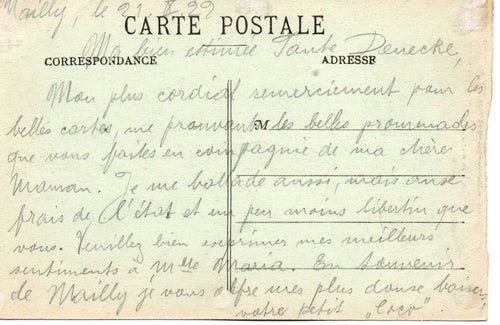 Mailly, le 21
CARTE POSTALE
Ma bien estimée Tante Denecke,
CORRESPONDANCE
ADRESSE
Mon plus cordial remerciement pour les
belles cartes, me prouvant les belles promenades
M
que vous faites en compagnie de ma chère
Maman. Je me ballade aussi, mais aux
frais de l'état et un peu moins libertin que
vous. Veuillez bien exprimer mes meilleurs
sentiments à Mlle Maria. En souvenir
de Mailly je vous offre mes plus baisers,
votre petit "Coco".